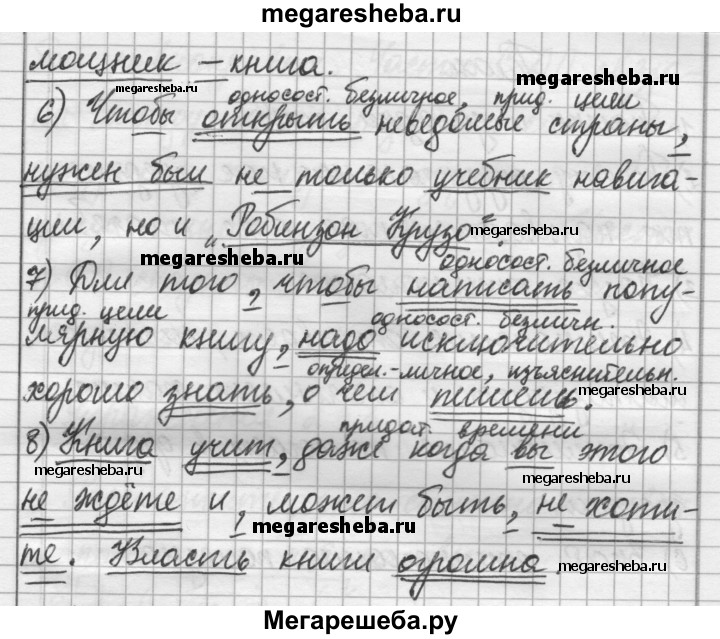 megaresheba.ru
мощник – книга.
megaresheba.ru
megaresheba.ru
односост. безличное, прид. цели
6) Чтобы открыть неведомые страны,
нужен был не только учебник навига-
ции, но и „Робинзон Крузо“.
megaresheba.ru
megaresheba.ru
односост. безличное
7) Для того, чтобы написать попу-
прид. цели
односост. безличн.
лярную книгу, надо исключительно
определ.-личное, изъяснительн.
хорошо знать, о чём пишешь.
megaresheba.ru
придат. времени
8) Книга учит, даже когда вы этого
megaresheba.ru
megaresheba.ru
не ждёте и, может быть, не хоти-
megaresheba.ru
те. Власть книги огромна.
megaresheba.ru
Мегарешеба.ру